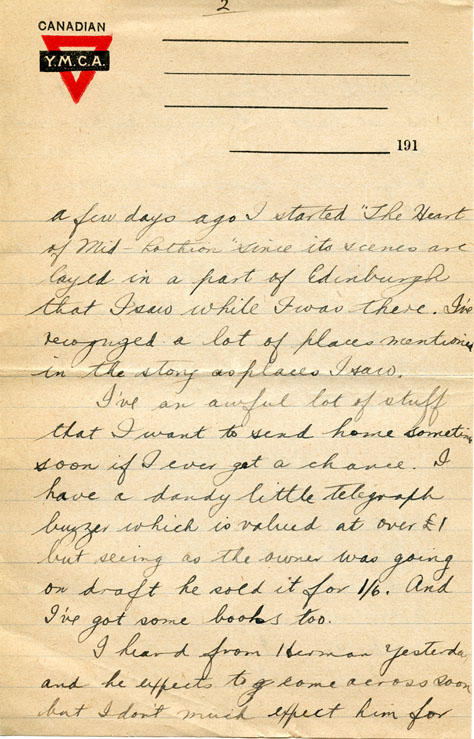 2
CANADIAN
Y.M.C.A.
191
a few days ago I started "The Heart
of Mid-Lothian" since its scenes are
layed in a part of Edinburgh
that I saw while I was there. I've
recognized a lot of places mentioned
in the story as places I saw.
I've an awful lot of stuff
that I want to send home sometime
soon if I ever get a chance. I
have a dandy little telegraph
buzzer which is valued at over £1
but seeing as the owner was going
on draft he sold it for 1/6. And
I've got some books too.
I heard from Herman Yesterda
and he expects to come across soon
but I don't much expect him for